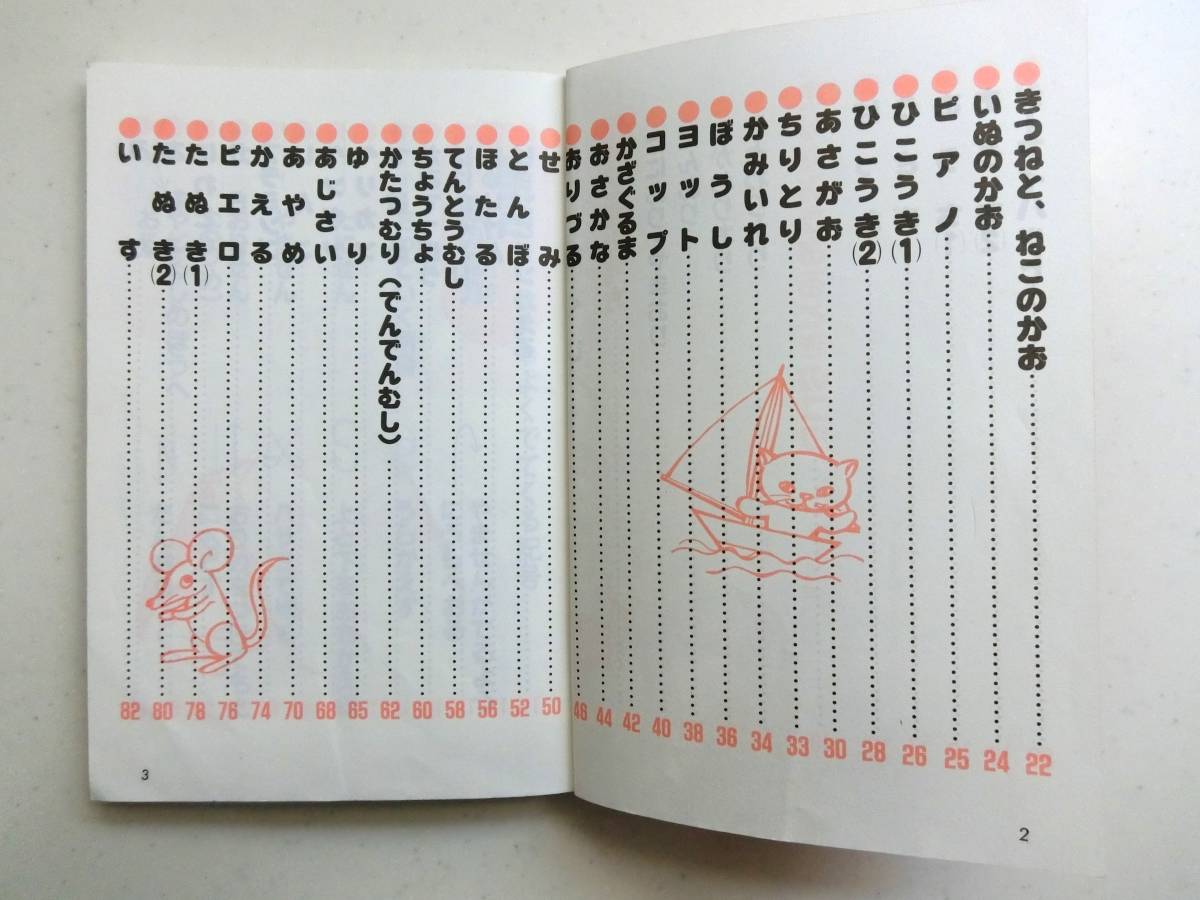 きつねと、ねこのかお 22
いぬのかお 24
ピアノ 25
ひこうき(1) 26
ひこうき(2) 28
あさがお 30
ちりとり 33
かみいれ 34
ぼうし 36
ヨット 38
コップ 40
かざぐるま 42
おさかな 44
おりづる 46
2
せみ 50
とんぼ 52
ほたる 56
てんとうむし 58
ちょうちょ 60
かたつむり(でんでんむし) 62
ゆり 65
あじさい 68
あやめ 70
かえる 74
ピエロ 76
たぬき(1) 78
たぬき(2) 80
いす 82
3